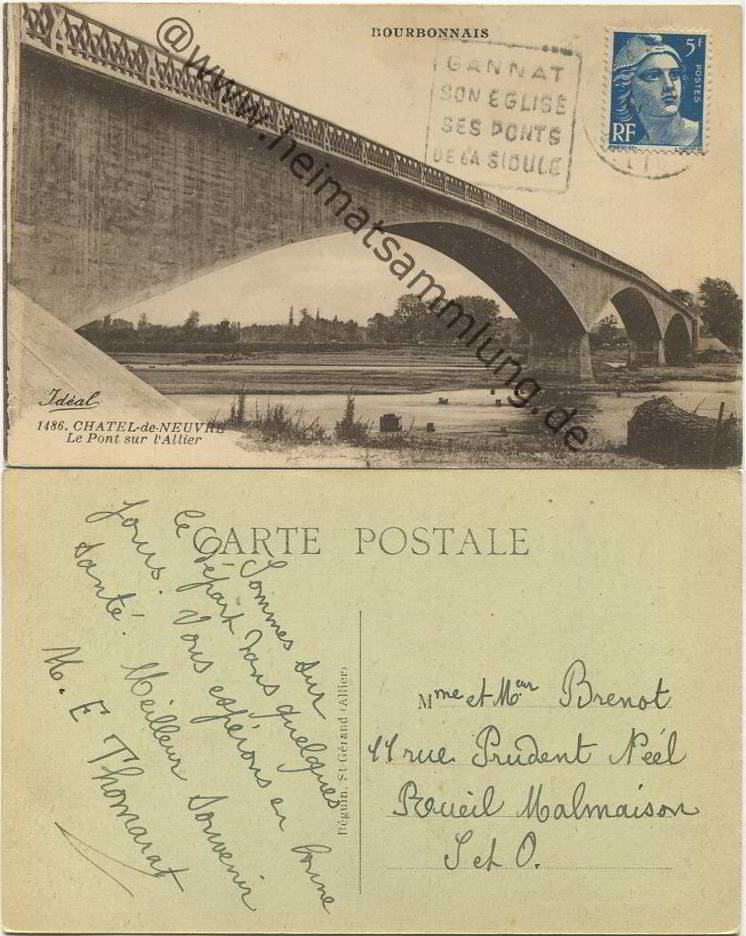 BOURBONNAIS
GANNAT
SON EGLISE
SES PONTS
DE LA SIOULE
5f
POSTES
RF
@www.heimatsammlung.de
Idéal
1486. CHATEL-de-NEUVRE
Le Pont sur l'Allier
CARTE POSTALE
Sommes sur
le départ dans quelques
jours. Vous espérons en bonne
santé. Meilleur Souvenir
M. E Thomarat
Béguin, St-Gérand (Allier)
Mme et Meur Brenot
11 rue Prudent Néel
Rueil Malmaison
S et O.